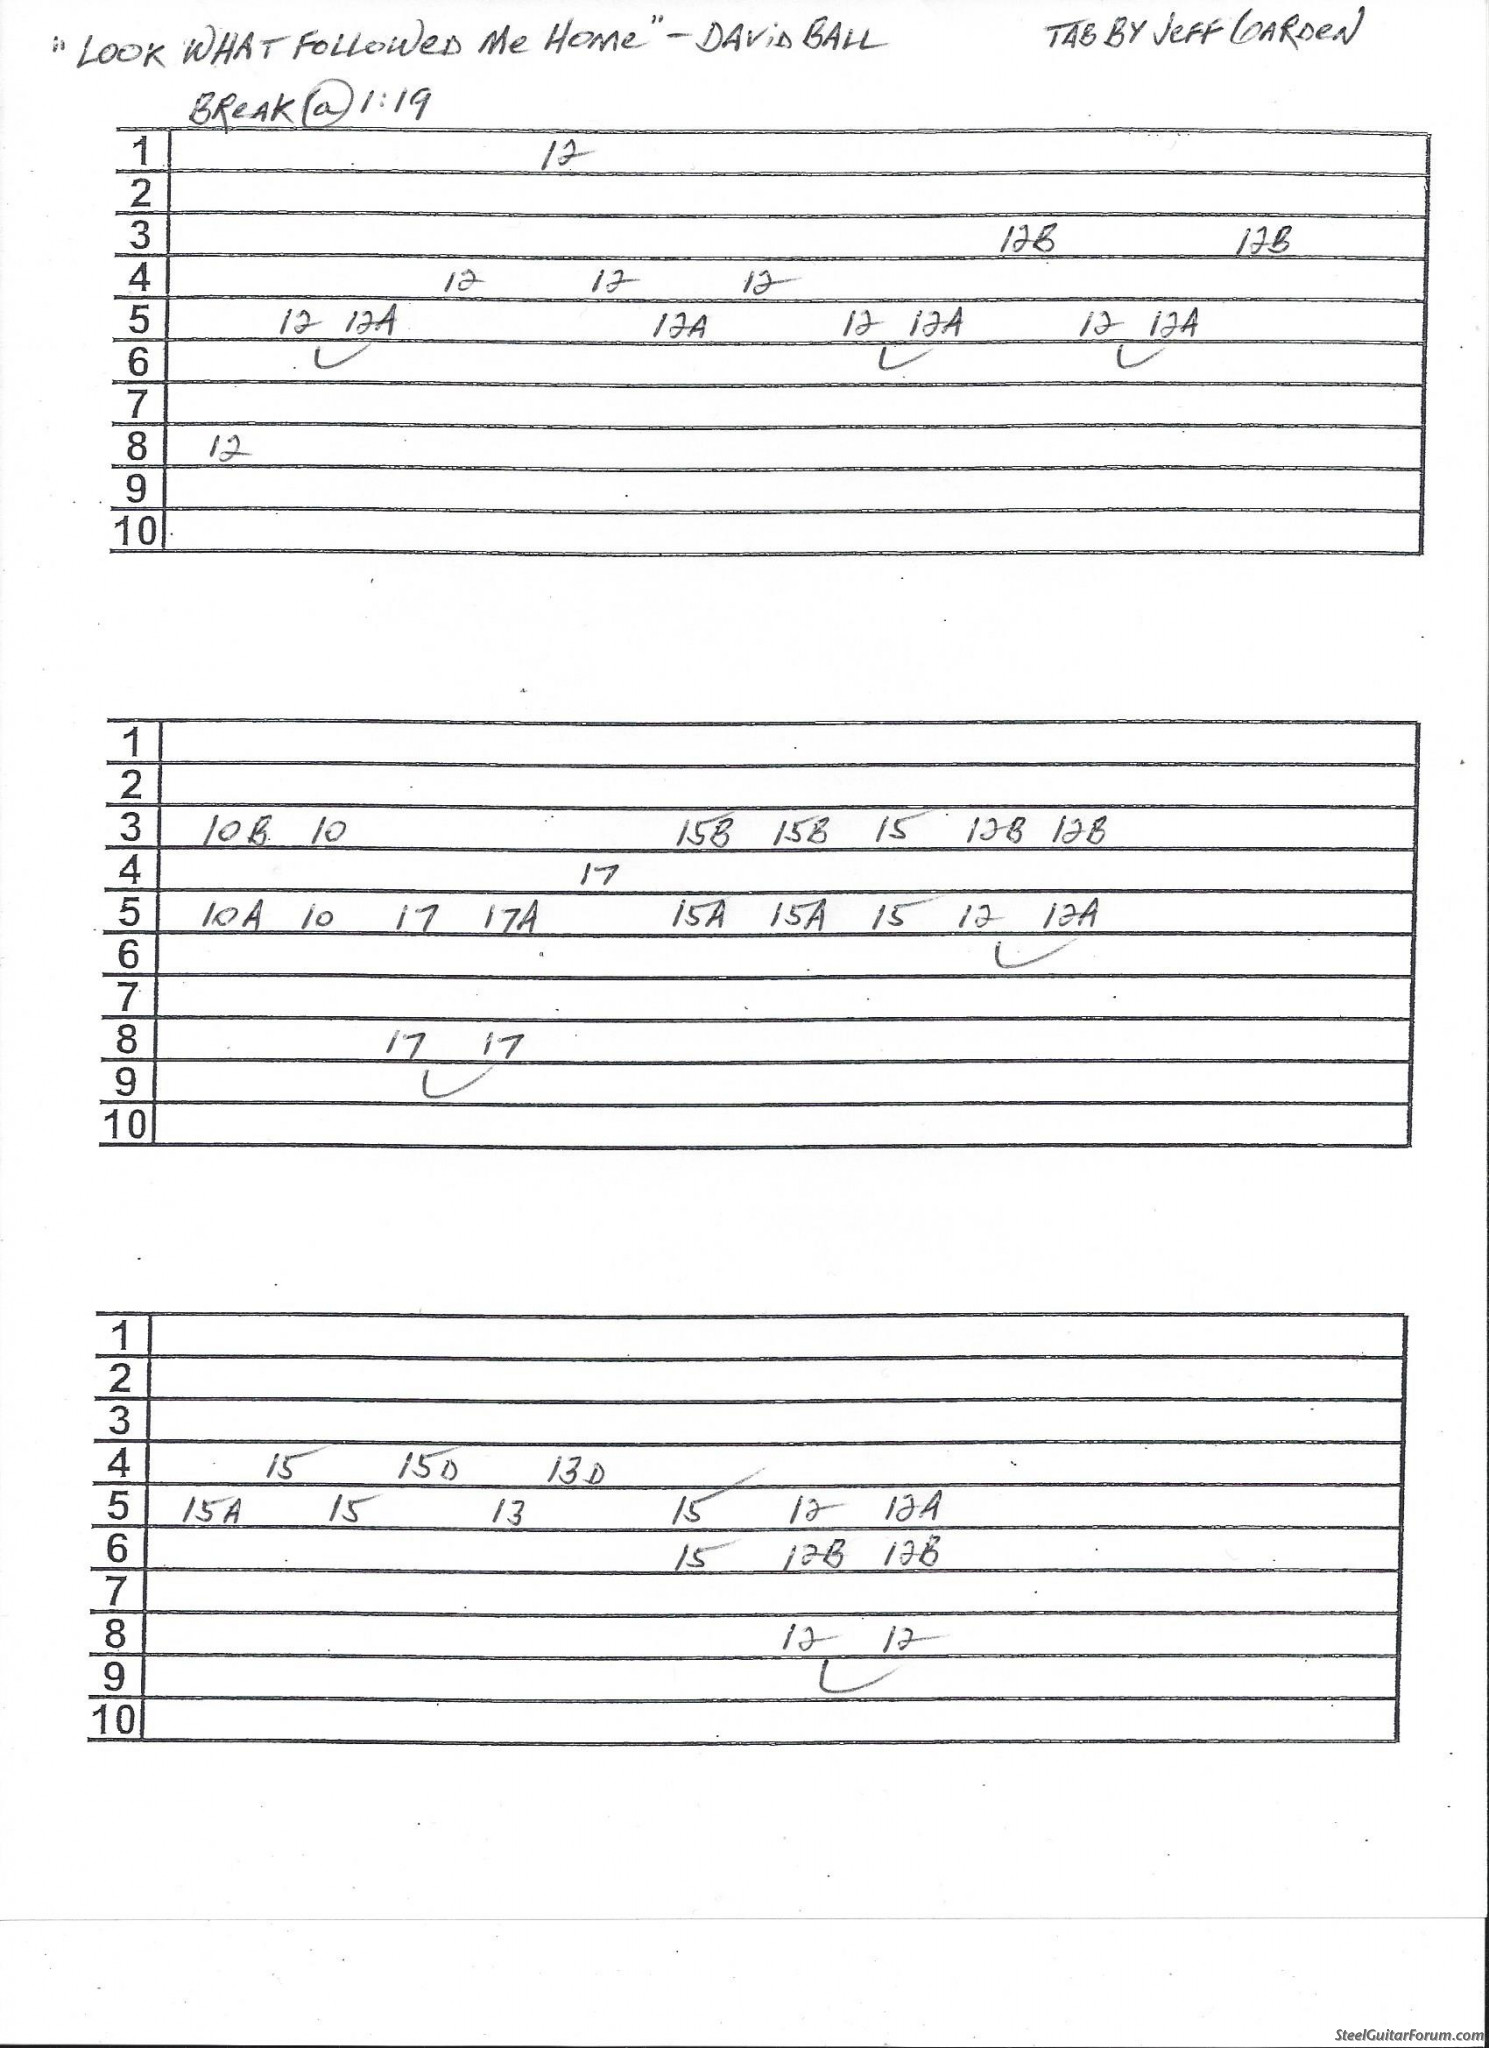 "LOOK WHAT FOLLOWED ME HOME" - DAVID BALL TAB BY JEFF GARDEN
BREAK @ 1:19
1 12
2
3 12B 12B
4 12 12 12
5 12 12A 12A 12 12A 12 12A
6
7
8 12
9
10
1
2
3 10B 10 15B 15B 15 12B 12B
4 17
5 10A 10 17 17A 15A 15A 15 12 12A
6
7
8 17 17
9
10
1
2
3
4 15 15D 13D
5 15A 15 13 15 12 12A
6 15 12B 12B
7
8 12 12
9
10
SteelGuitarForum.com